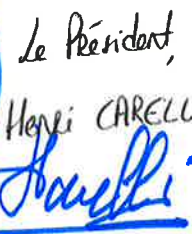 Le Président,
Henri CARELL